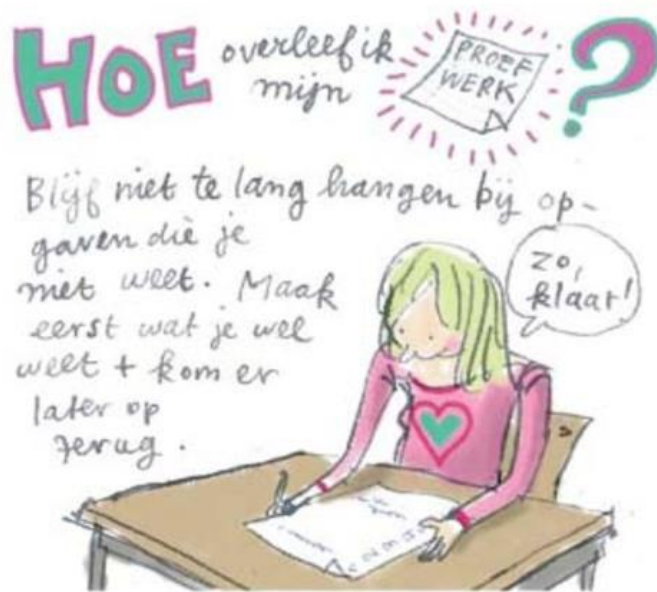 HOE overleef ik
mijn
PROEF
WERK
?
Blijf niet te lang hangen bij op-
gaven die je
niet weet. Maak
eerst wat je wel
weet + kom er
later op
terug.
zo,
klaar!